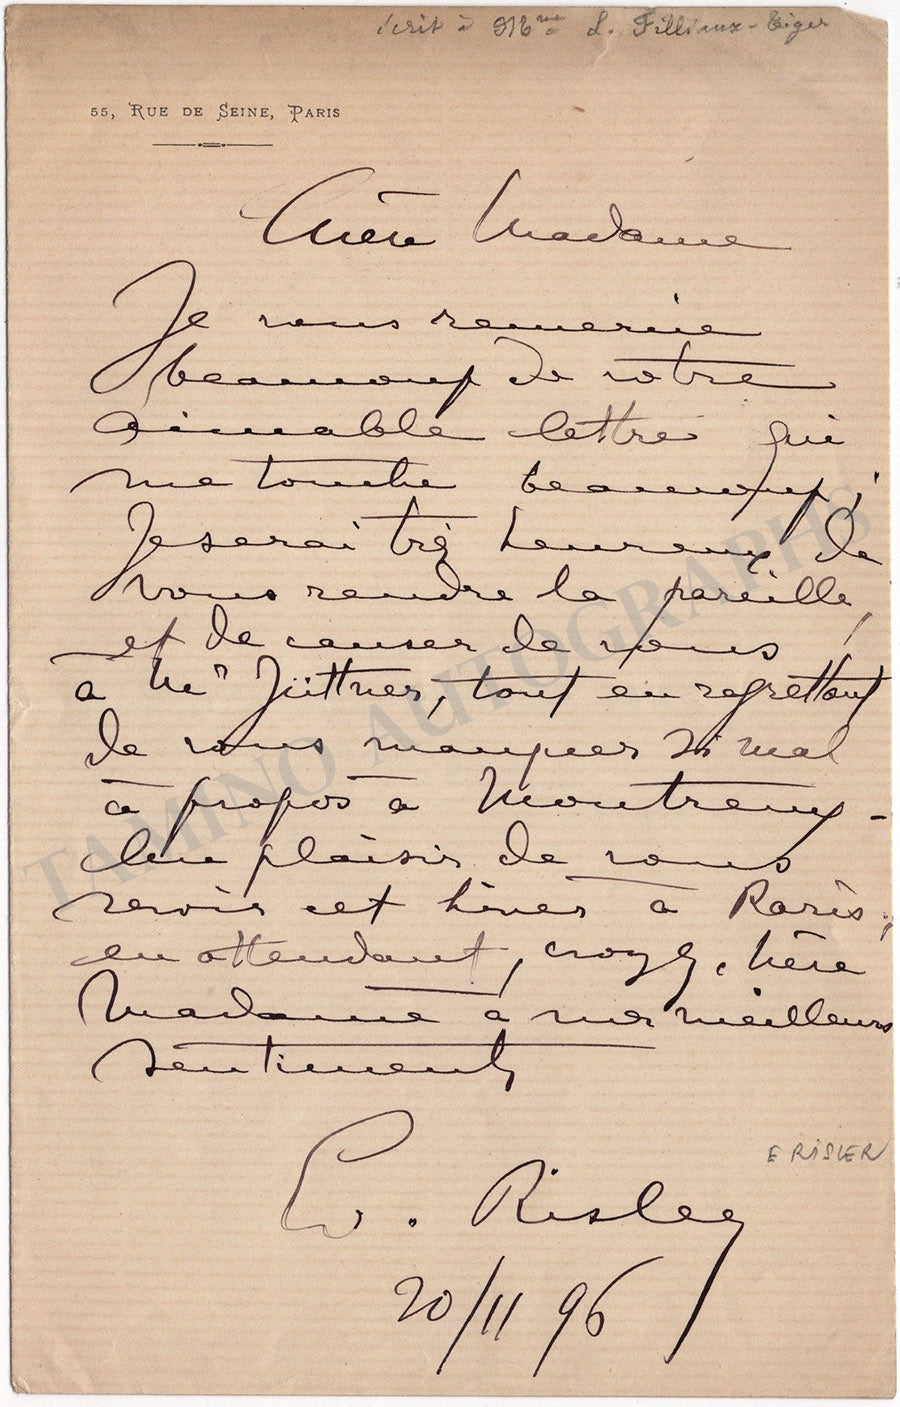 écrit à Mme L. Fillieux-Tiger
55, Rue de Seine, Paris
Chère Madame
Je vous remercie
beaucoup de votre
aimable lettre qui
me touche beaucoup;
Je serai très heureux de
vous rendre la pareille,
et de causer de vous
à Mr Jüttner, tout en regrettant
de vous manquer si mal
à propos à Montreux -
Au plaisir de vous
revoir cet hiver à Paris;
en attendant, croyez, chère
Madame à mes meilleurs
sentiments
E RISLER
Ed. Risler
20/11 96
TAMINO AUTOGRAPHS